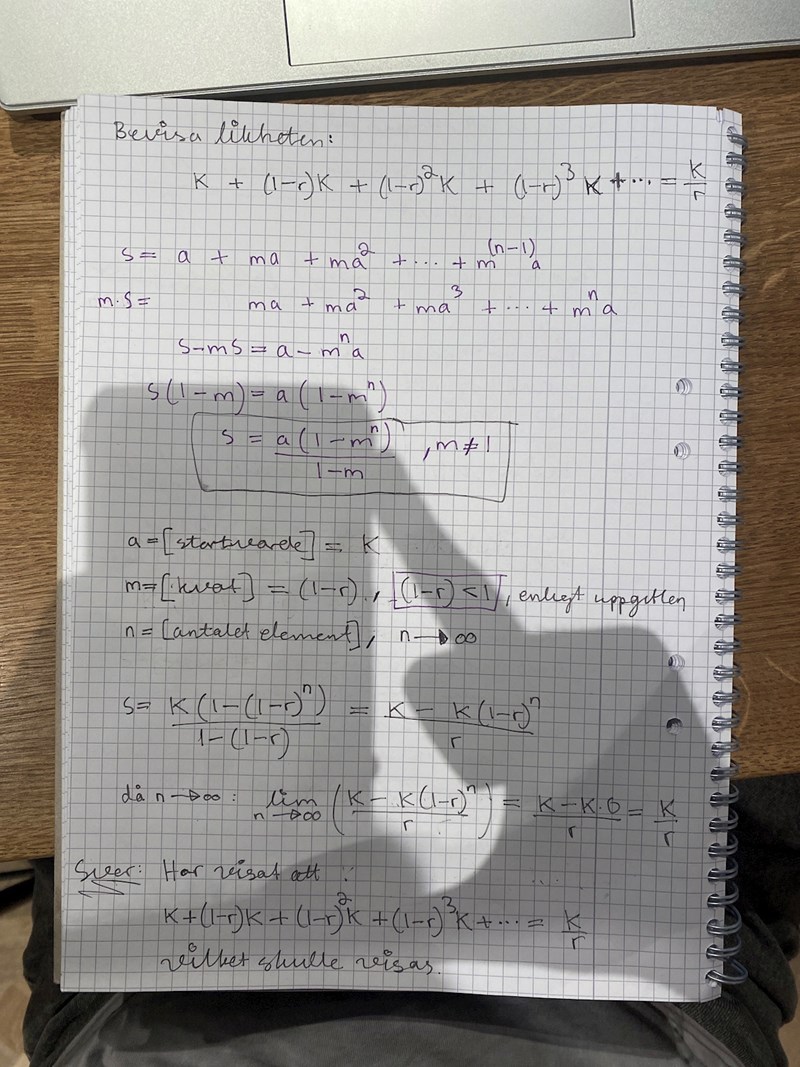 Bevisa likheten:
K + (1-r)K + (1-r)²K + (1-r)³K + ... = K/r
S = a + ma + ma² + ... + m^(n-1) a
m·S = ma + ma² + ma³ + ... + mⁿa
S-mS = a - mⁿa
S(1-m) = a(1-mⁿ)
S = a(1-mⁿ)/(1-m) , m≠1
a = [startvärde] = K
m = [kvot] = (1-r), (1-r) < 1, enligt uppgiften
n = [antalet element], n → ∞
S = K(1-(1-r)ⁿ)/(1-(1-r)) = (K - K(1-r)ⁿ)/r
då n→∞: lim n→∞ ((K - K(1-r)ⁿ)/r) = (K-K·0)/r = K/r
Svar: Har visat att :
K+(1-r)K+(1-r)²K+(1-r)³K+... = K/r
vilket skulle visas.